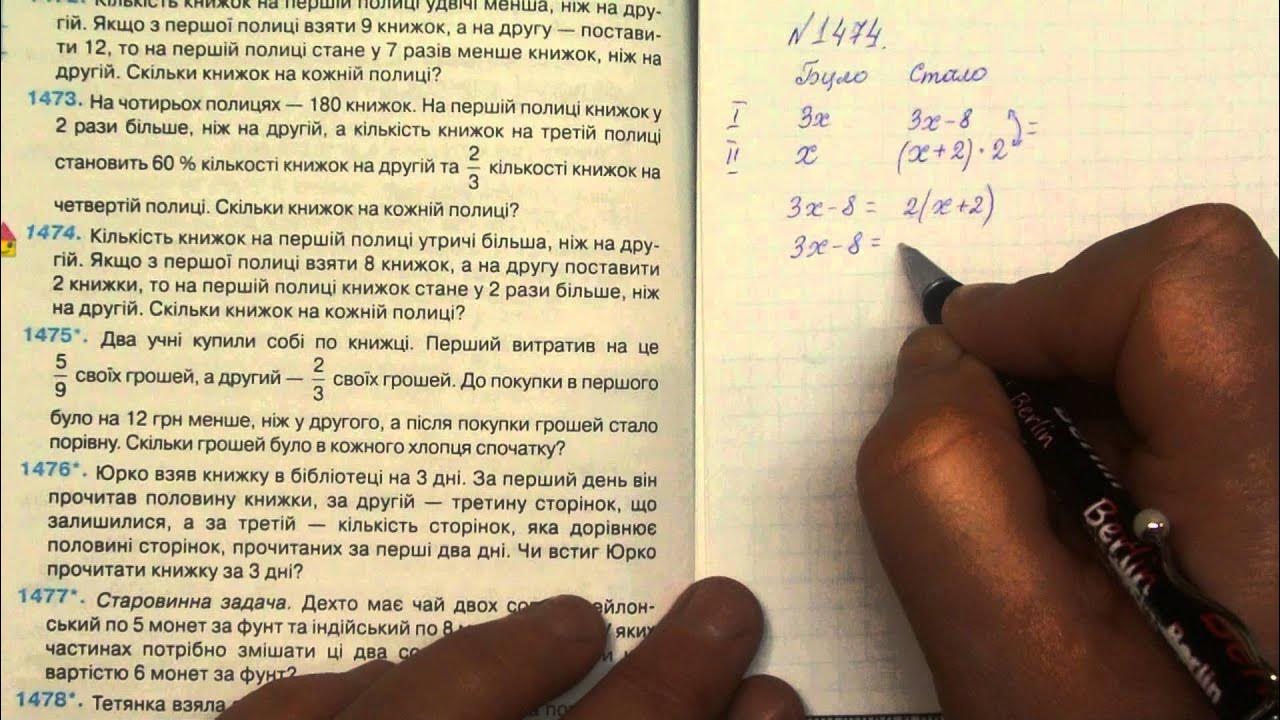 Кількість книжок на першій полиці удвічі менша, ніж на дру-
гій. Якщо з першої полиці взяти 9 книжок, а на другу — постави-
ти 12, то на першій полиці стане у 7 разів менше книжок, ніж на
другій. Скільки книжок на кожній полиці?
1473. На чотирьох полицях — 180 книжок. На першій полиці книжок у
2 рази більше, ніж на другій, а кількість книжок на третій полиці
становить 60 % кількості книжок на другій та 2/3 кількості книжок на
четвертій полиці. Скільки книжок на кожній полиці?
1474. Кількість книжок на першій полиці утричі більша, ніж на дру-
гій. Якщо з першої полиці взяти 8 книжок, а на другу поставити
2 книжки, то на першій полиці книжок стане у 2 рази більше, ніж
на другій. Скільки книжок на кожній полиці?
1475*. Два учні купили собі по книжці. Перший витратив на це
5/9 своїх грошей, а другий — 2/3 своїх грошей. До покупки в першого
було на 12 грн менше, ніж у другого, а після покупки грошей стало
порівну. Скільки грошей було в кожного хлопця спочатку?
1476*. Юрко взяв книжку в бібліотеці на 3 дні. За перший день він
прочитав половину книжки, за другій — третину сторінок, що
залишилися, а за третій — кількість сторінок, яка дорівнює
половині сторінок, прочитаних за перші два дні. Чи встиг Юрко
прочитати книжку за 3 дні?
1477*. Старовинна задача. Дехто має чай двох
ський по 5 монет за фунт та індійський по 8 яких
частинах потрібно змішати ці два
вартістю 6 монет за фунт?
1478*. Тетянка взяла
№1474.
Було Стало
I 3x 3x-8
II x (x+2)·2 =
3x-8 = 2(x+2)
3x-8 =
Berlin
Berlin
Berlin